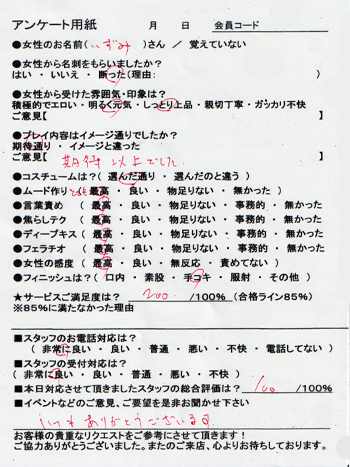 アンケート用紙　　　月　　日　　会員コード
●女性のお名前（いずみ）さん ／ 覚えていない
●女性から名刺をもらいましたか？
はい ・ いいえ ・ 断った（理由：　　　　　）
●女性から受けた雰囲気・印象は？
積極的でエロい・明るく元気・しっとり上品・親切丁寧・ガッカリ不快
ご意見【　　　　　】
●プレイ内容はイメージ通りでしたか？
期待通り ・ イメージと違った
ご意見【 期待以上でした 】
●コスチュームは？（ 選んだ通り ・ 選んだのと違う ）
●ムード作り（とても最高 ・ 良い ・ 物足りない ・ 無かった ）
●言葉責め （ 最高 ・ 良い ・ 物足りない ・ 事務的 ・ 無かった ）
●焦らしテク （ 最高 ・ 良い ・ 物足りない ・ 事務的 ・ 無かった ）
●ディープキス（ 最高 ・ 良い ・ 物足りない ・ 事務的 ・ 無かった ）
●フェラチオ （ 最高 ・ 良い ・ 物足りない ・ 事務的 ・ 無かった ）
●女性の感度（ 最高 ・ 良い ・ 無反応 ・ 責めてない ）
●フィニッシュは？（ 口内 ・ 素股 ・ 手コキ ・ 服射 ・ その他 ）
★サービスご満足度は？ 200 /100% （合格ライン85%）
※85%に満たなかった理由
■スタッフのお電話対応は？
（ 非常に良い ・ 良い ・ 普通 ・ 悪い ・ 不快 ・ 電話してない ）
■スタッフの受付対応は？
（ 非常に良い ・ 良い ・ 普通 ・ 悪い ・ 不快 ）
■本日対応させて頂きましたスタッフの総合評価は？ 100 /100%
■イベントなどのご意見、ご要望を是非お聞かせ下さい
いつもありがとうございます
お客様の貴重なリクエストをご参考にさせて頂きます！
ご協力ありがとうございました。またのご来店、心よりお待ちしております。